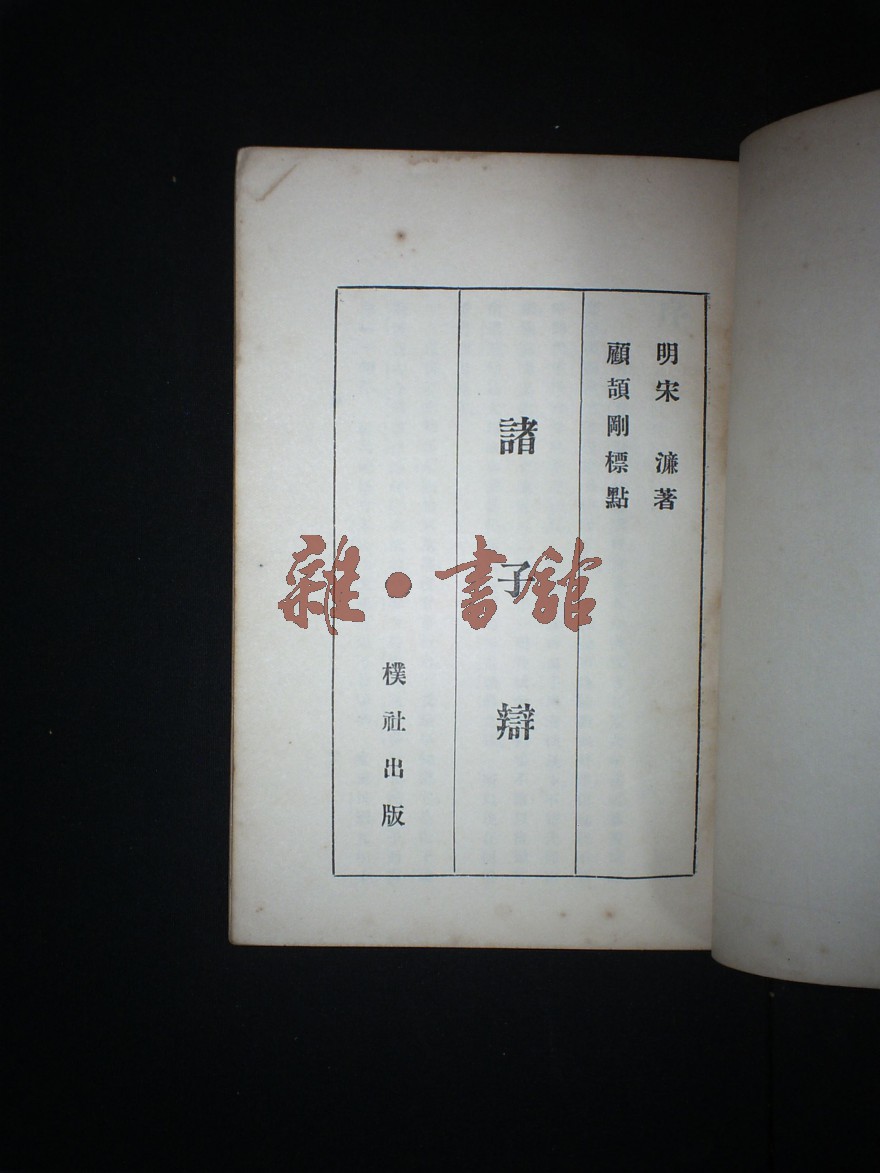 明宋 濂著
顧頡剛標點
諸子辯
樸社出版
雜·書館